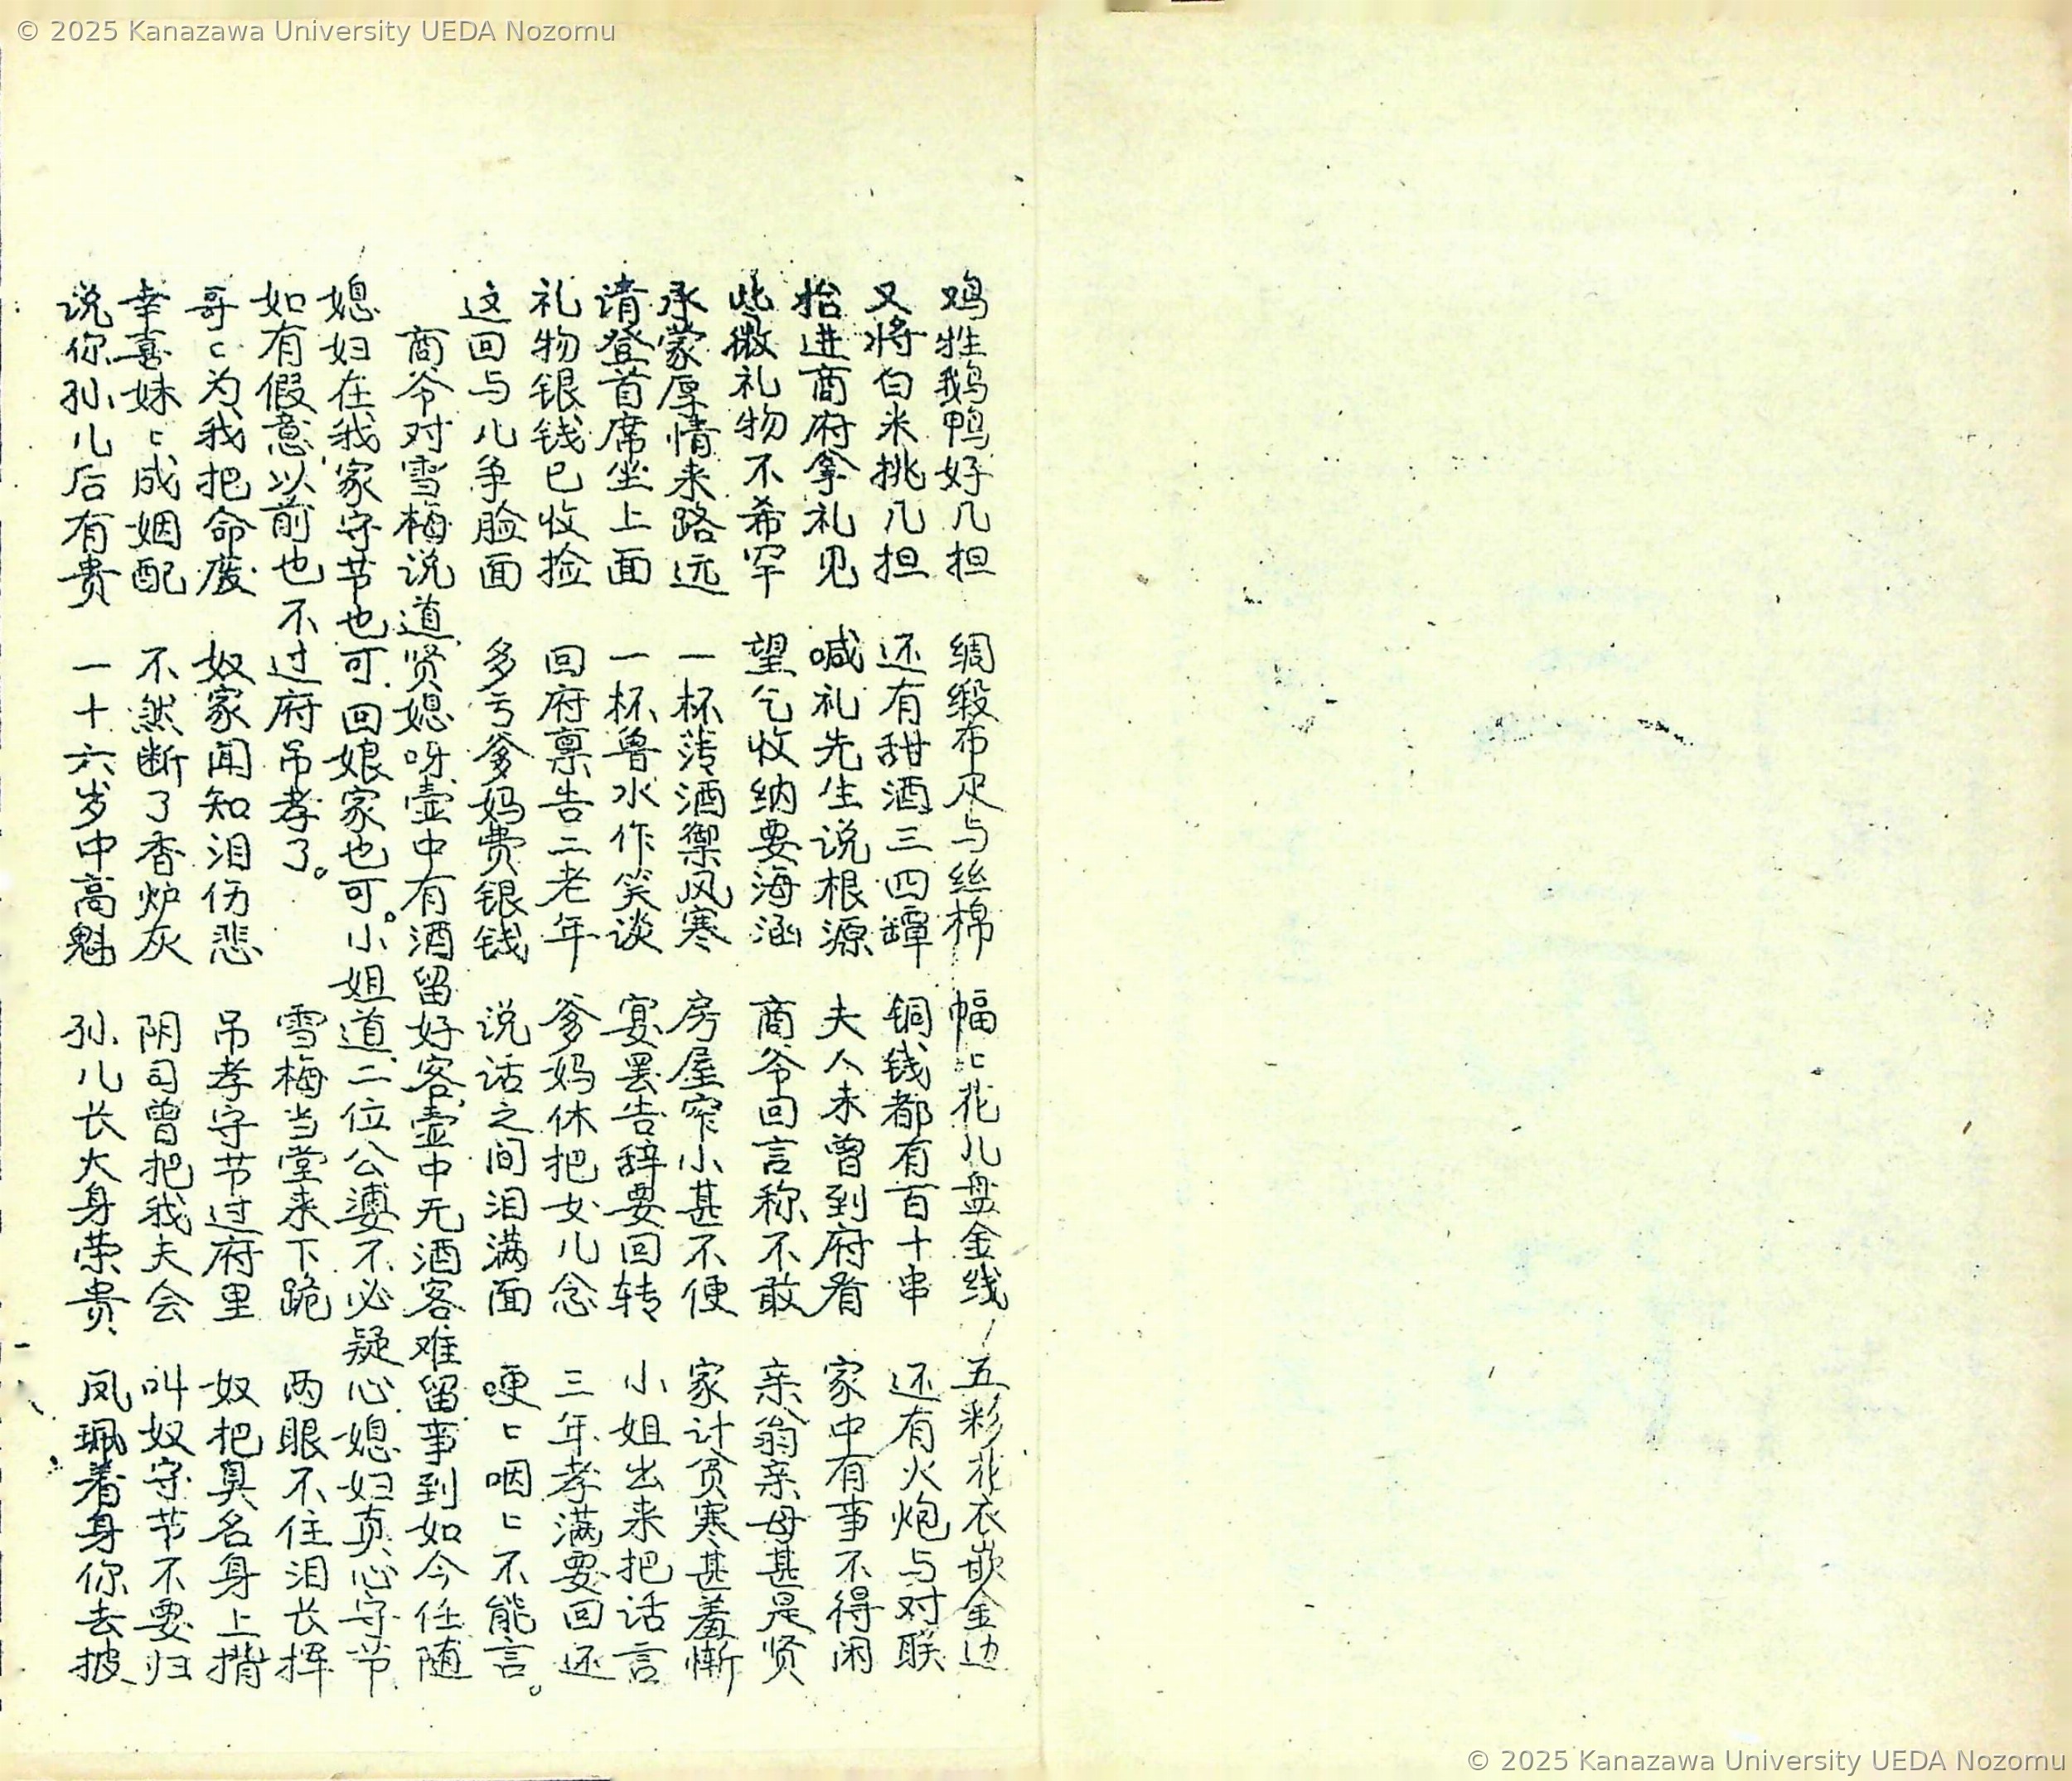 © 2025 Kanazawa University UEDA Nozomu
鸡牲鹅鸭好几担 绸缎布疋与丝棉 幅〻花儿盘金线 五彩花衣嵌金边
又将白米挑几担 还有甜酒三四罈 铜钱都有百十串 还有火炮与对联
抬进商府拿礼见 喊礼先生说根源 夫人未曾到府看 家中有事不得闲
些微礼物不希罕 望乞收纳要海涵 商爷回言称不敢 亲翁亲母甚是贤
承蒙厚情来路远 一杯薄酒禦风寒 房屋窄小甚不便 家计贫寒甚羞惭
请登首席坐上面 一杯鲁水作笑谈 宴罢告辞要回转 小姐出来把话言
礼物银钱已收捡 回府禀告二老年 爹妈休把女儿念 三年孝满要回还
这回与儿争脸面 多亏爹妈费银钱 说话之间泪满面 哽〻咽〻不能言。
商爷对雪梅说道、贤媳呀、壶中有酒留好客、壶中无酒客难留事到如今任随
媳妇在我家守节也可、回娘家也可。小姐道、二位公婆不必疑心、媳妇真心守节
如有假意、以前也不过府吊孝了。 雪梅当堂来下跪 两眼不住泪长挥
哥〻为我把命废 奴家闻知泪伤悲 吊孝守节过府里 奴把臭名身上揹
幸喜妹〻成姻配 不然断了香炉灰 阴司曾把我夫会 叫奴守节不要归
说你孙儿后有贵 一十六岁中高魁 孙儿长大身荣贵 凤珮着身你去披
© 2025 Kanazawa University UEDA Nozomu